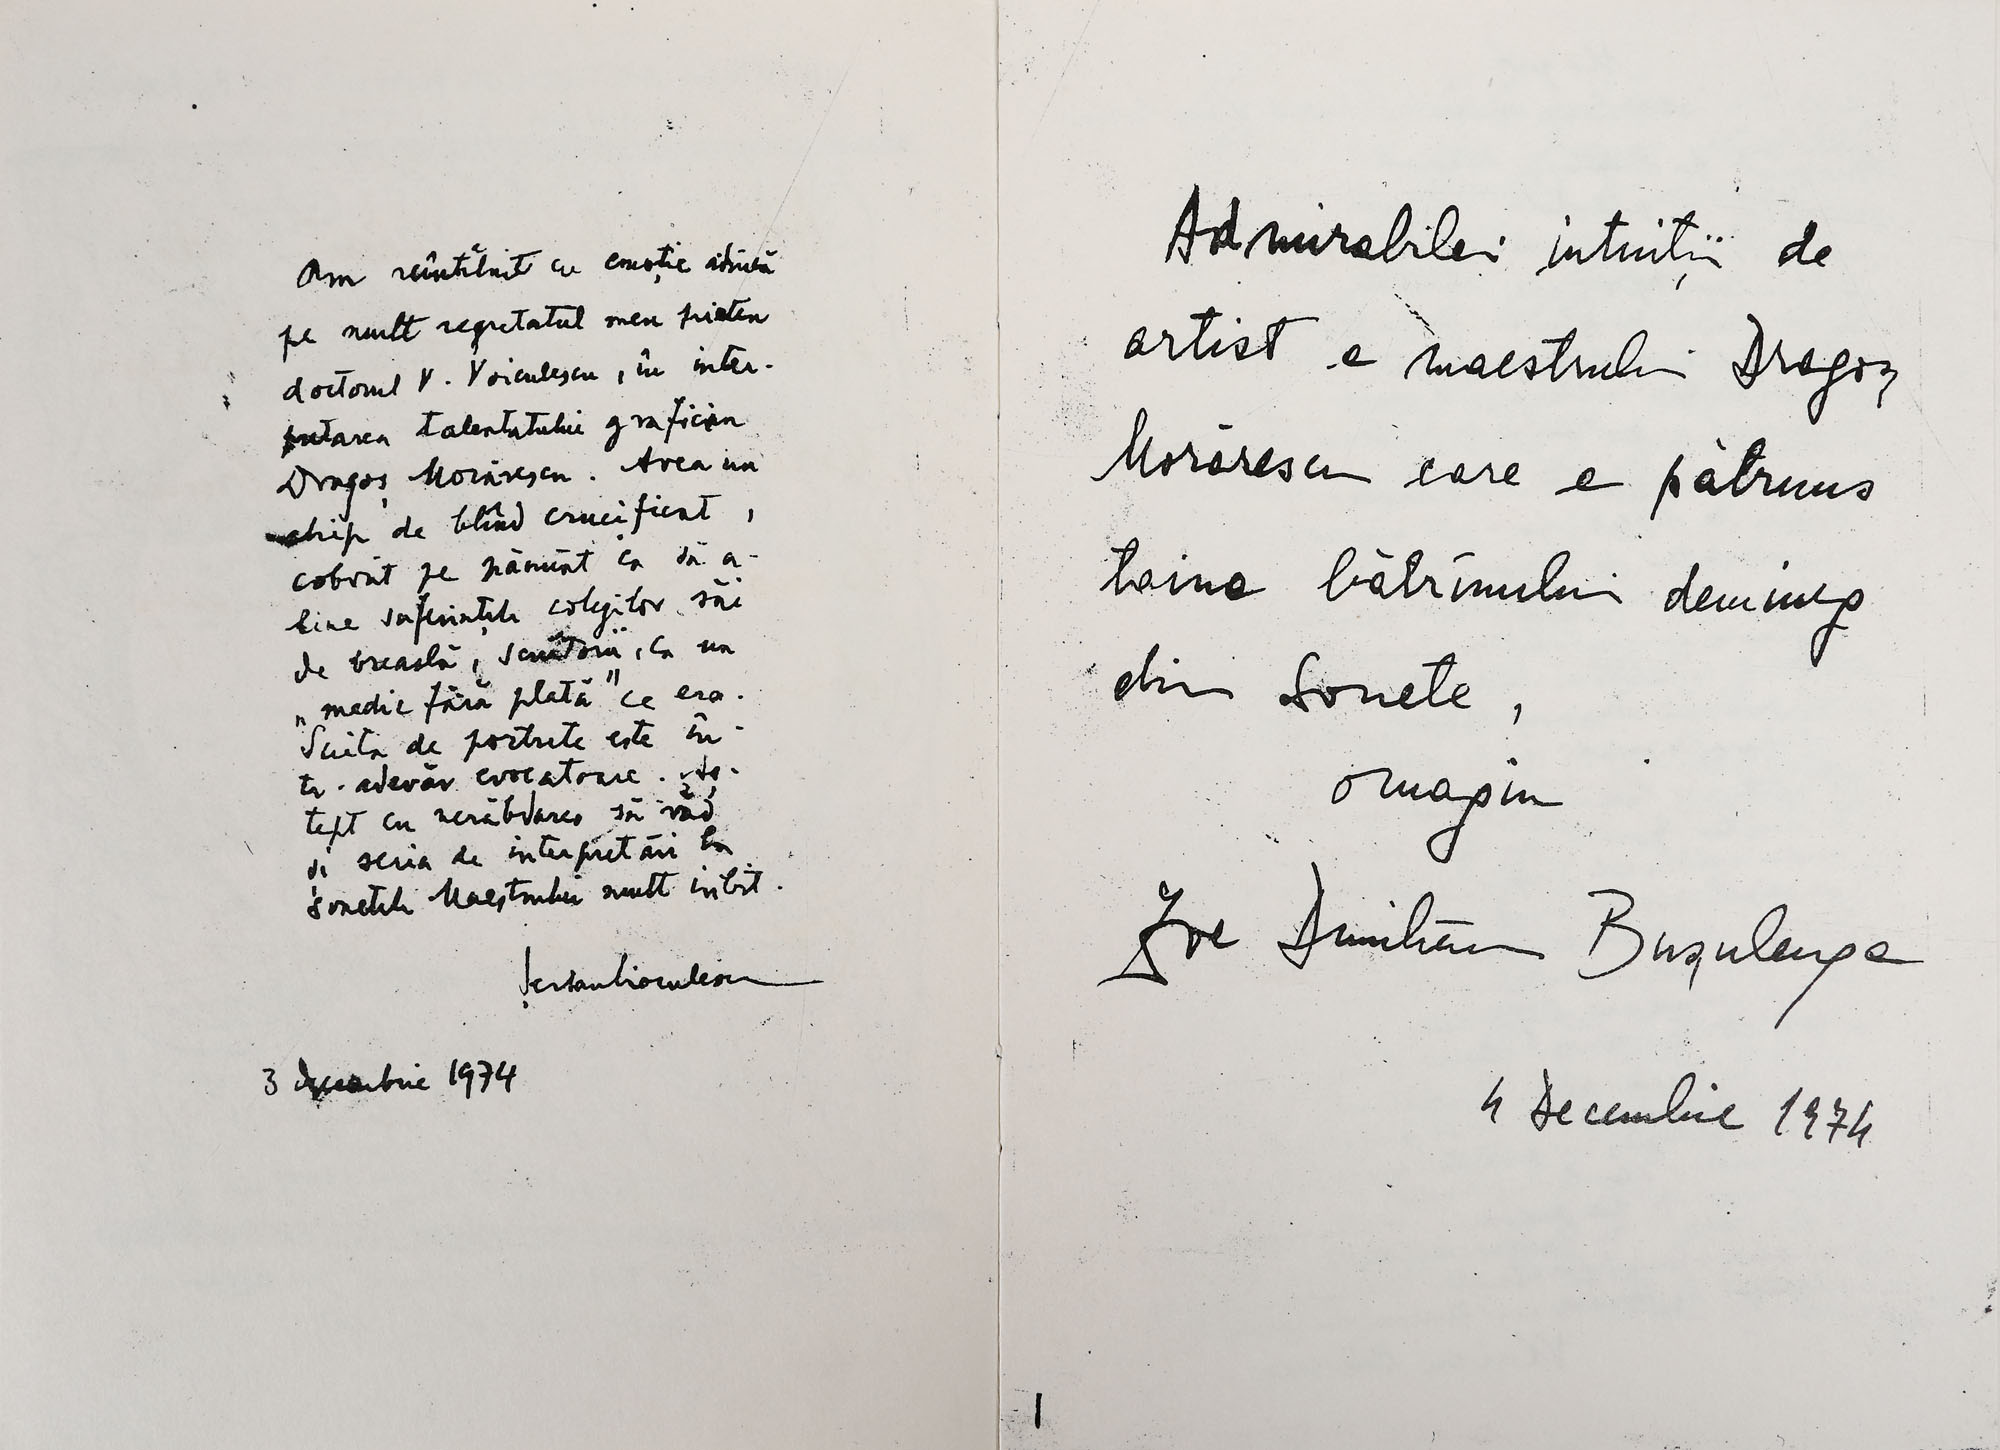 Am reîntâlnit cu emoție adâncă
pe mult regretatul meu prieten
doctorul V. Voiculescu, în inter-
pretarea talentatului grafician
Dragoș Morărescu. Avea un
chip de blînd crucificat,
coborît pe pămînt ca să a-
line suferințele colegilor săi
de breaslă, scriitorii, ca un
„medic fără plată" ce era.
Suita de portrete este în-
tr-adevăr evocatoare. Aș-
tept cu nerăbdare să văd
și seria de interpretări la
Sonetele Maestrului mult iubit.
Șerban Cioculescu
3 decembrie 1974
Admirabilei intuiții de
artist a maestrului Dragoș
Morărescu care a pătruns
taina bătrînului demiurg
din Sonete,
omagiu
Zoe Dumitrescu Bușulenga
4 Decembrie 1974